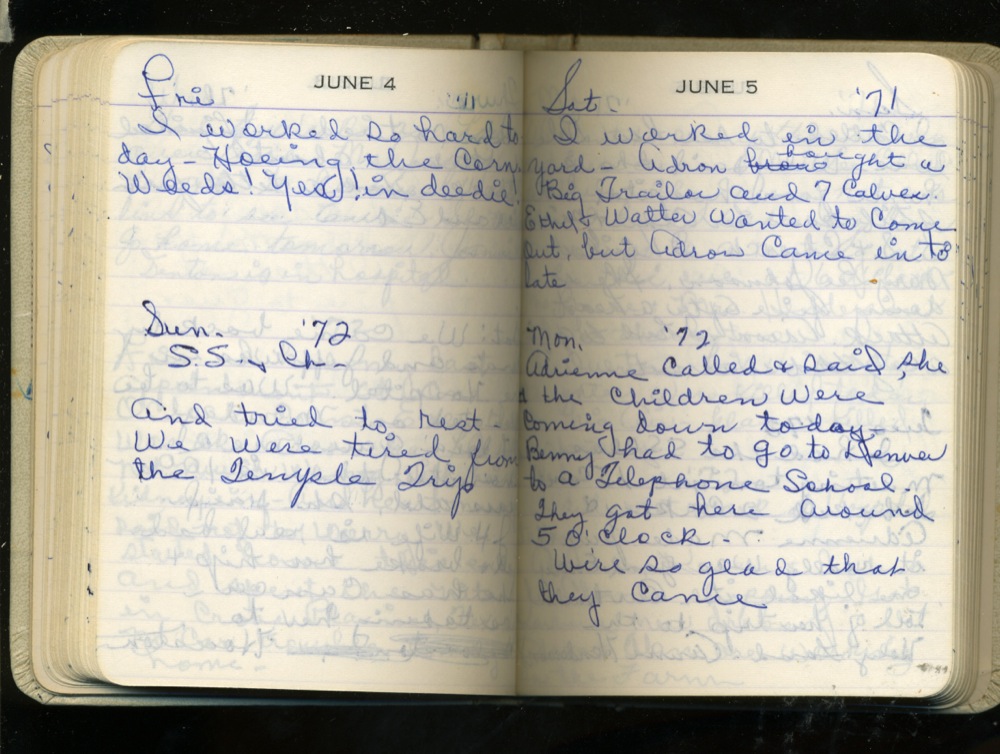 JUNE 4
Fri '71
I worked so hard to
day - Hoeing the Corn,
Weeds! Yea! in deedie!
Sun. '72
S.S. & Ch -
And tried to rest -
We were tired from
the Temple Trip
JUNE 5
Sat. '71
I worked in the
yard - Adron bought a
Big Trailor and 7 Calves.
Ethel & Walter Wanted to Come
out, but Adron Came in to
late
Mon. '72
Adrienne Called & said, she
& the Children Were
Coming down today -
Benny had to go to Denver
to a Telephone School.
They got here around
5 O'Clock -
We're so glad that
they Came